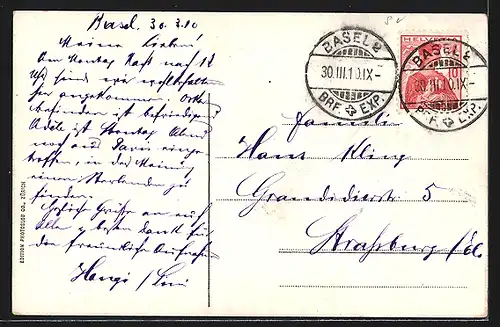 Basel. 30. 3. 10
Meine Lieben!
Am Montag Nachts nach 12
Uhr sind wir wohlbehalten
hier angekommen.
befinden ist befriedigend
Adele ist Sonntag Abend
von Paris einge-
troffen, in der Meinung
einen Sterbenden zu
finden.
Herzliche Grüsse an euch
Alle & besten Dank für
die freundliche Aufnahme
EDITION PHOTOGLOB CO., ZÜRICH
BASEL 2
30.III.10.IX-
BRF. EXP.
HELVETIA
10
BASEL 2
30.III.10.IX-
BRF. EXP.
Familie
Hans Kling
Grandidierstr 5
Straßburg /Els.